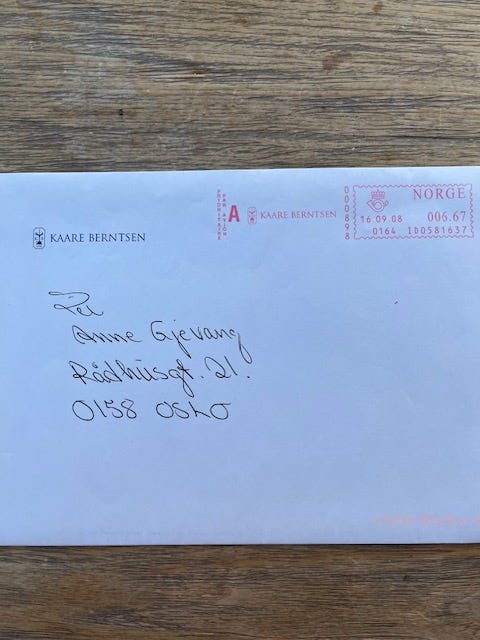 PRIORITAIRE
PAR AVION
A
KAARE BERNTSEN
000898
NORGE
16.09.08 006.67
0164 ID0581637
KAARE BERNTSEN
Anne Gjevang
Rådhusgt. 21.
0158 OSLO